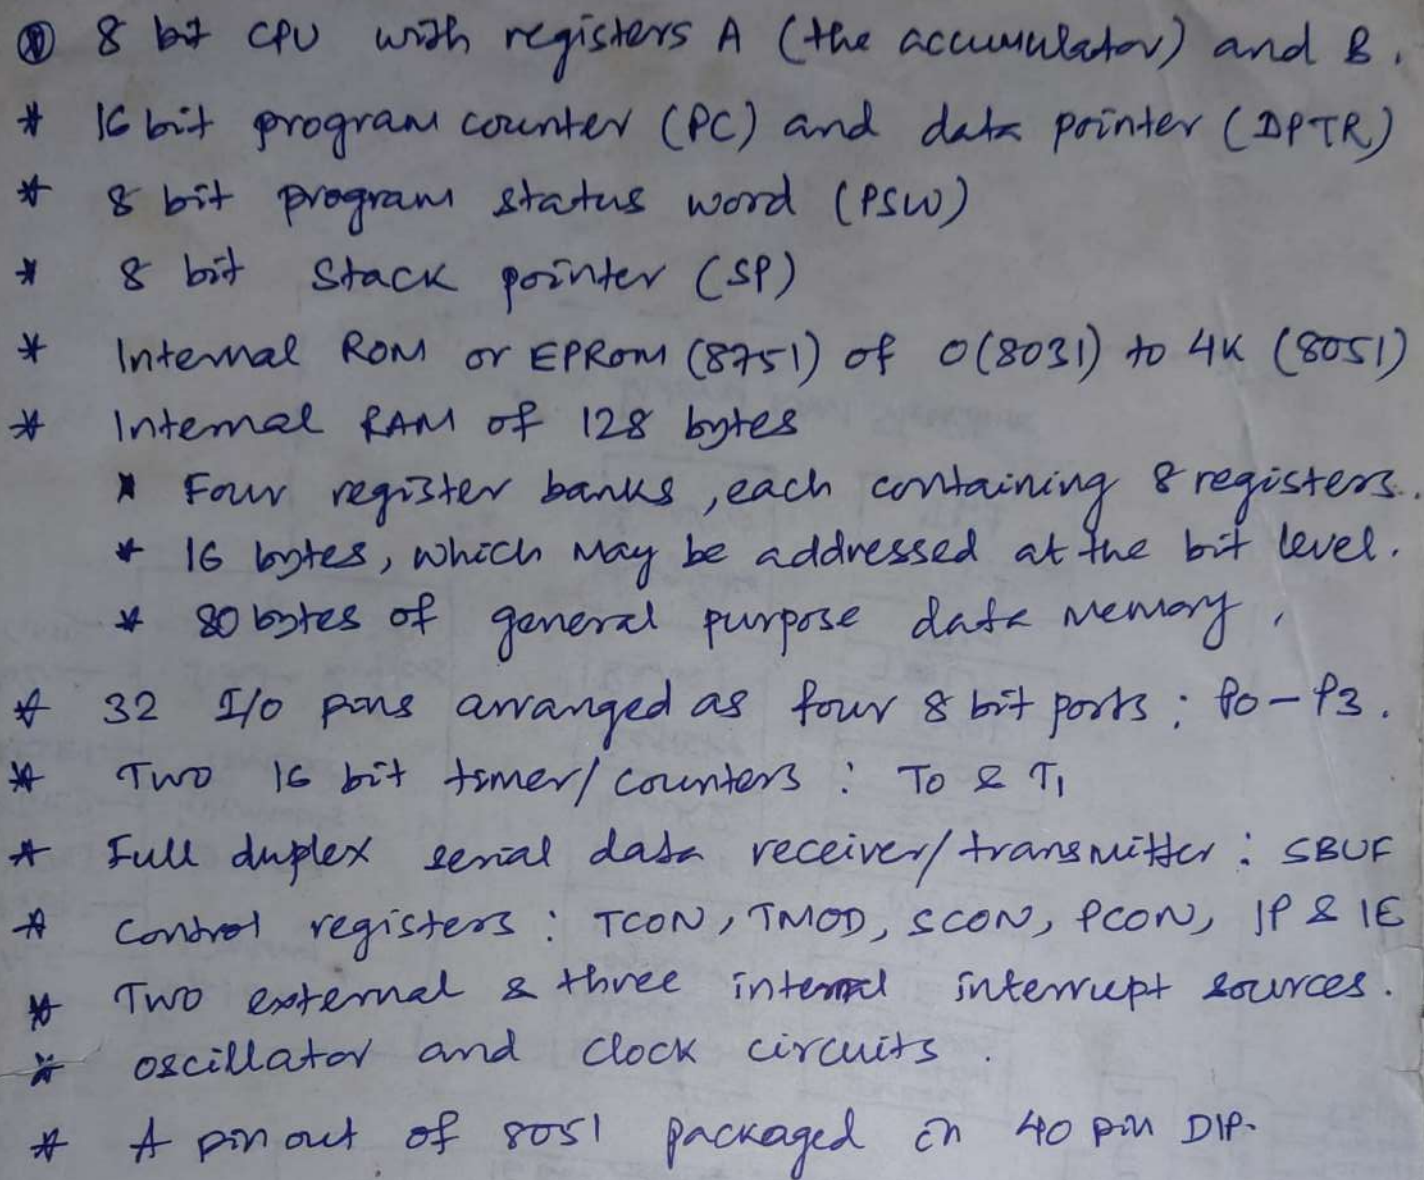 * 8 bit CPU with registers A (the accumulator) and B.
* 16 bit program counter (PC) and data pointer (DPTR)
* 8 bit program status word (PSW)
* 8 bit Stack pointer (SP)
* Internal ROM or EPROM (8751) of 0(8031) to 4K (8051)
* Internal RAM of 128 bytes
* Four register banks, each containing 8 registers.
* 16 bytes, which may be addressed at the bit level.
* 80 bytes of general purpose data memory.
* 32 I/O pins arranged as four 8 bit ports : P0-P3.
* Two 16 bit timer/counters : T0 & T1
* Full duplex serial data receiver/transmitter : SBUF
* Control registers : TCON, TMOD, SCON, PCON, IP & IE
* Two external & three internal interrupt sources.
* oscillator and clock circuits.
* A pin out of 8051 packaged in 40 pin DIP.